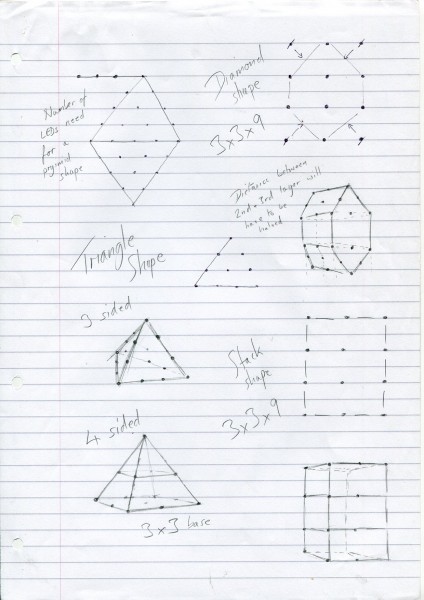 Number of
LEDs need
for a
pyimid
shape
Diamond
shape
3x3x9
Distance between
2nd + 3rd layer will
have to be
halved
Triangle
Shape
3 sided
Stack
shape
3x3x9
4 sided
3x3 base